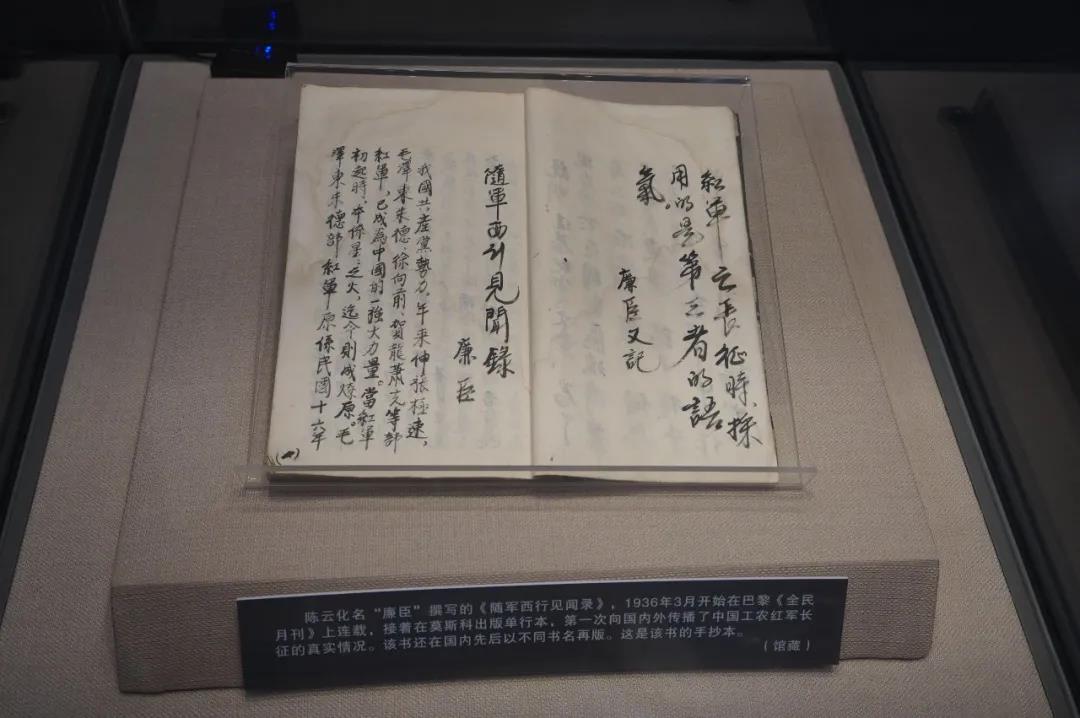 紅軍之長征時採
用的是第三者的語
氣。
廉臣又記
隨軍西行見聞錄
廉臣
我國共產黨勢力，年来伸張極速，
毛澤東朱德、徐向前、賀龍蕭克等部
紅軍，已成為中國的一強大力量。當紅軍
初起時，本係星、之火，迄今則成燎原。毛
澤東朱德部紅軍原係民國十六年
陈云化名“廉臣”撰写的《随军西行见闻录》，1936年3月开始在巴黎《全民
月刊》上连载，接着在莫斯科出版单行本，第一次向国内外传播了中国工农红军长
征的真实情况。该书还在国内先后以不同书名再版。这是该书的手抄本。
（馆藏）